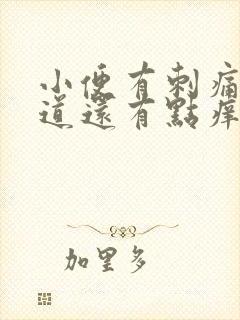 小便有刺痛
道還有點痒
加里多